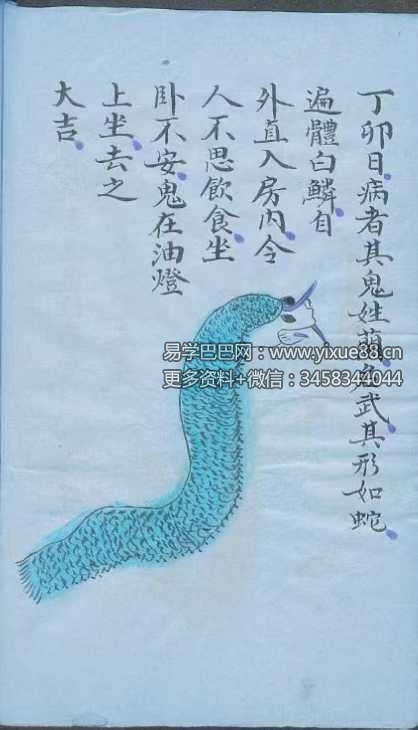 丁卯日病者其鬼姓萠名武其形如蛇
遍體白鱗自
外直入房內令
人不思飲食坐
卧不安鬼在油燈
上坐去之
大吉
易学巴巴网:www.yixue88.cn
更多资料+微信:3458344044